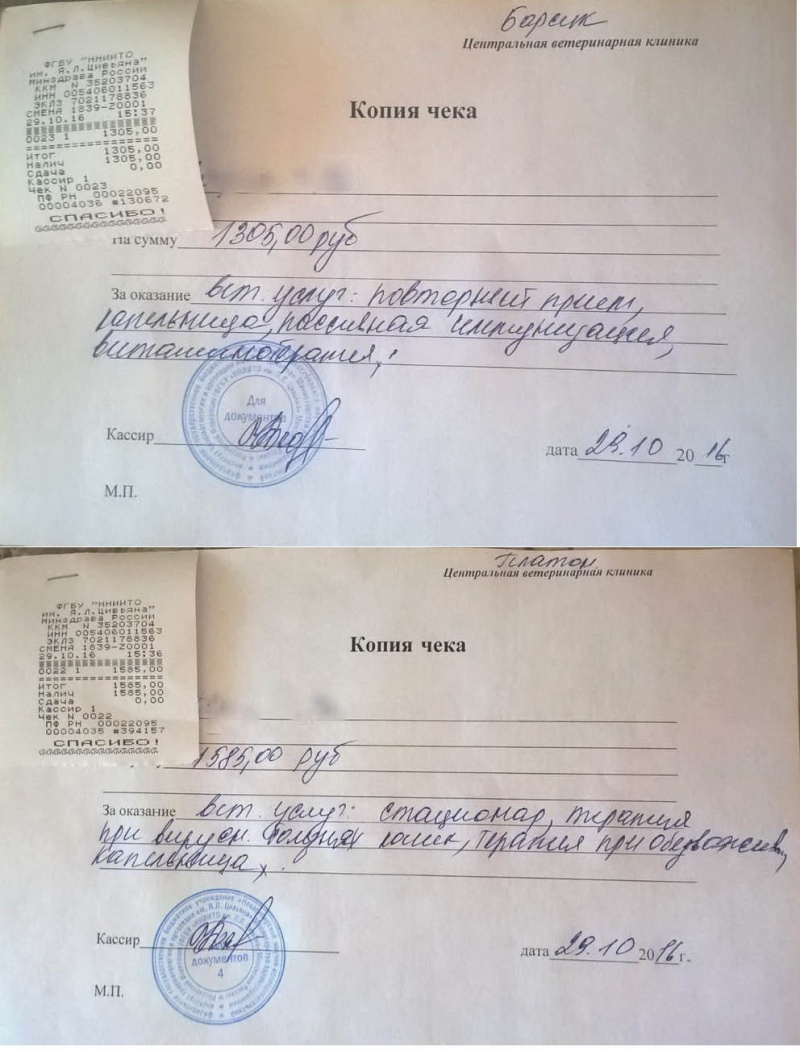 Барсик
Центральная ветеринарная клиника
ФГБУ "ННИИТО
им. Я.Л.Цивьяна"
Минздрава России
ККМ N 35203704
ИНН 005406011563
ЭКЛЗ 7021178836
СМЕНА 1839-Z0001
29.10.16 15:37
0023 1 1305,00
Итог 1305,00
Налич 1305,00
Сдача 0,00
Кассир 1
Чек N 0023
ПФ РН 00022095
00004036 #130672
СПАСИБО!
Копия чека
На сумму 1305,00 руб
За оказание вет. услуг: повторный прием,
капельница, пассивная иммунизация,
витаминотерапия,
Для
документов
Кассир
дата 29.10 2016г
М.П.
Платон
Центральная ветеринарная клиника
ФГБУ "ННИИТО
им. Я.Л.Цивьяна"
Минздрава России
ККМ N 35203704
ИНН 005406011563
ЭКЛЗ 7021178836
СМЕНА 1839-Z0001
29.10.16 15:36
0022 1 1585,00
Итог 1585,00
Налич 1585,00
Сдача 0,00
Кассир 1
Чек N 0022
ПФ РН 00022095
00004035 #394157
СПАСИБО!
Копия чека
1585,00 руб
За оказание вет. услуг: стационар, терапия
при вирусн. кошек, терапия при обезвожив,
капельница
документов
4
Кассир
дата 29.10 2016г.
М.П.